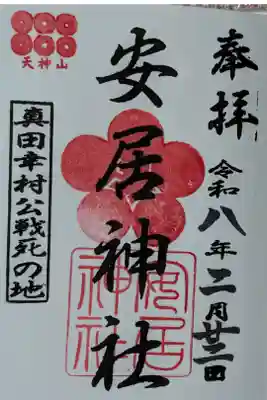 奉拝
令和八年二月廿三日
安居神社
安居神社
天神山
真田幸村公戦死の地